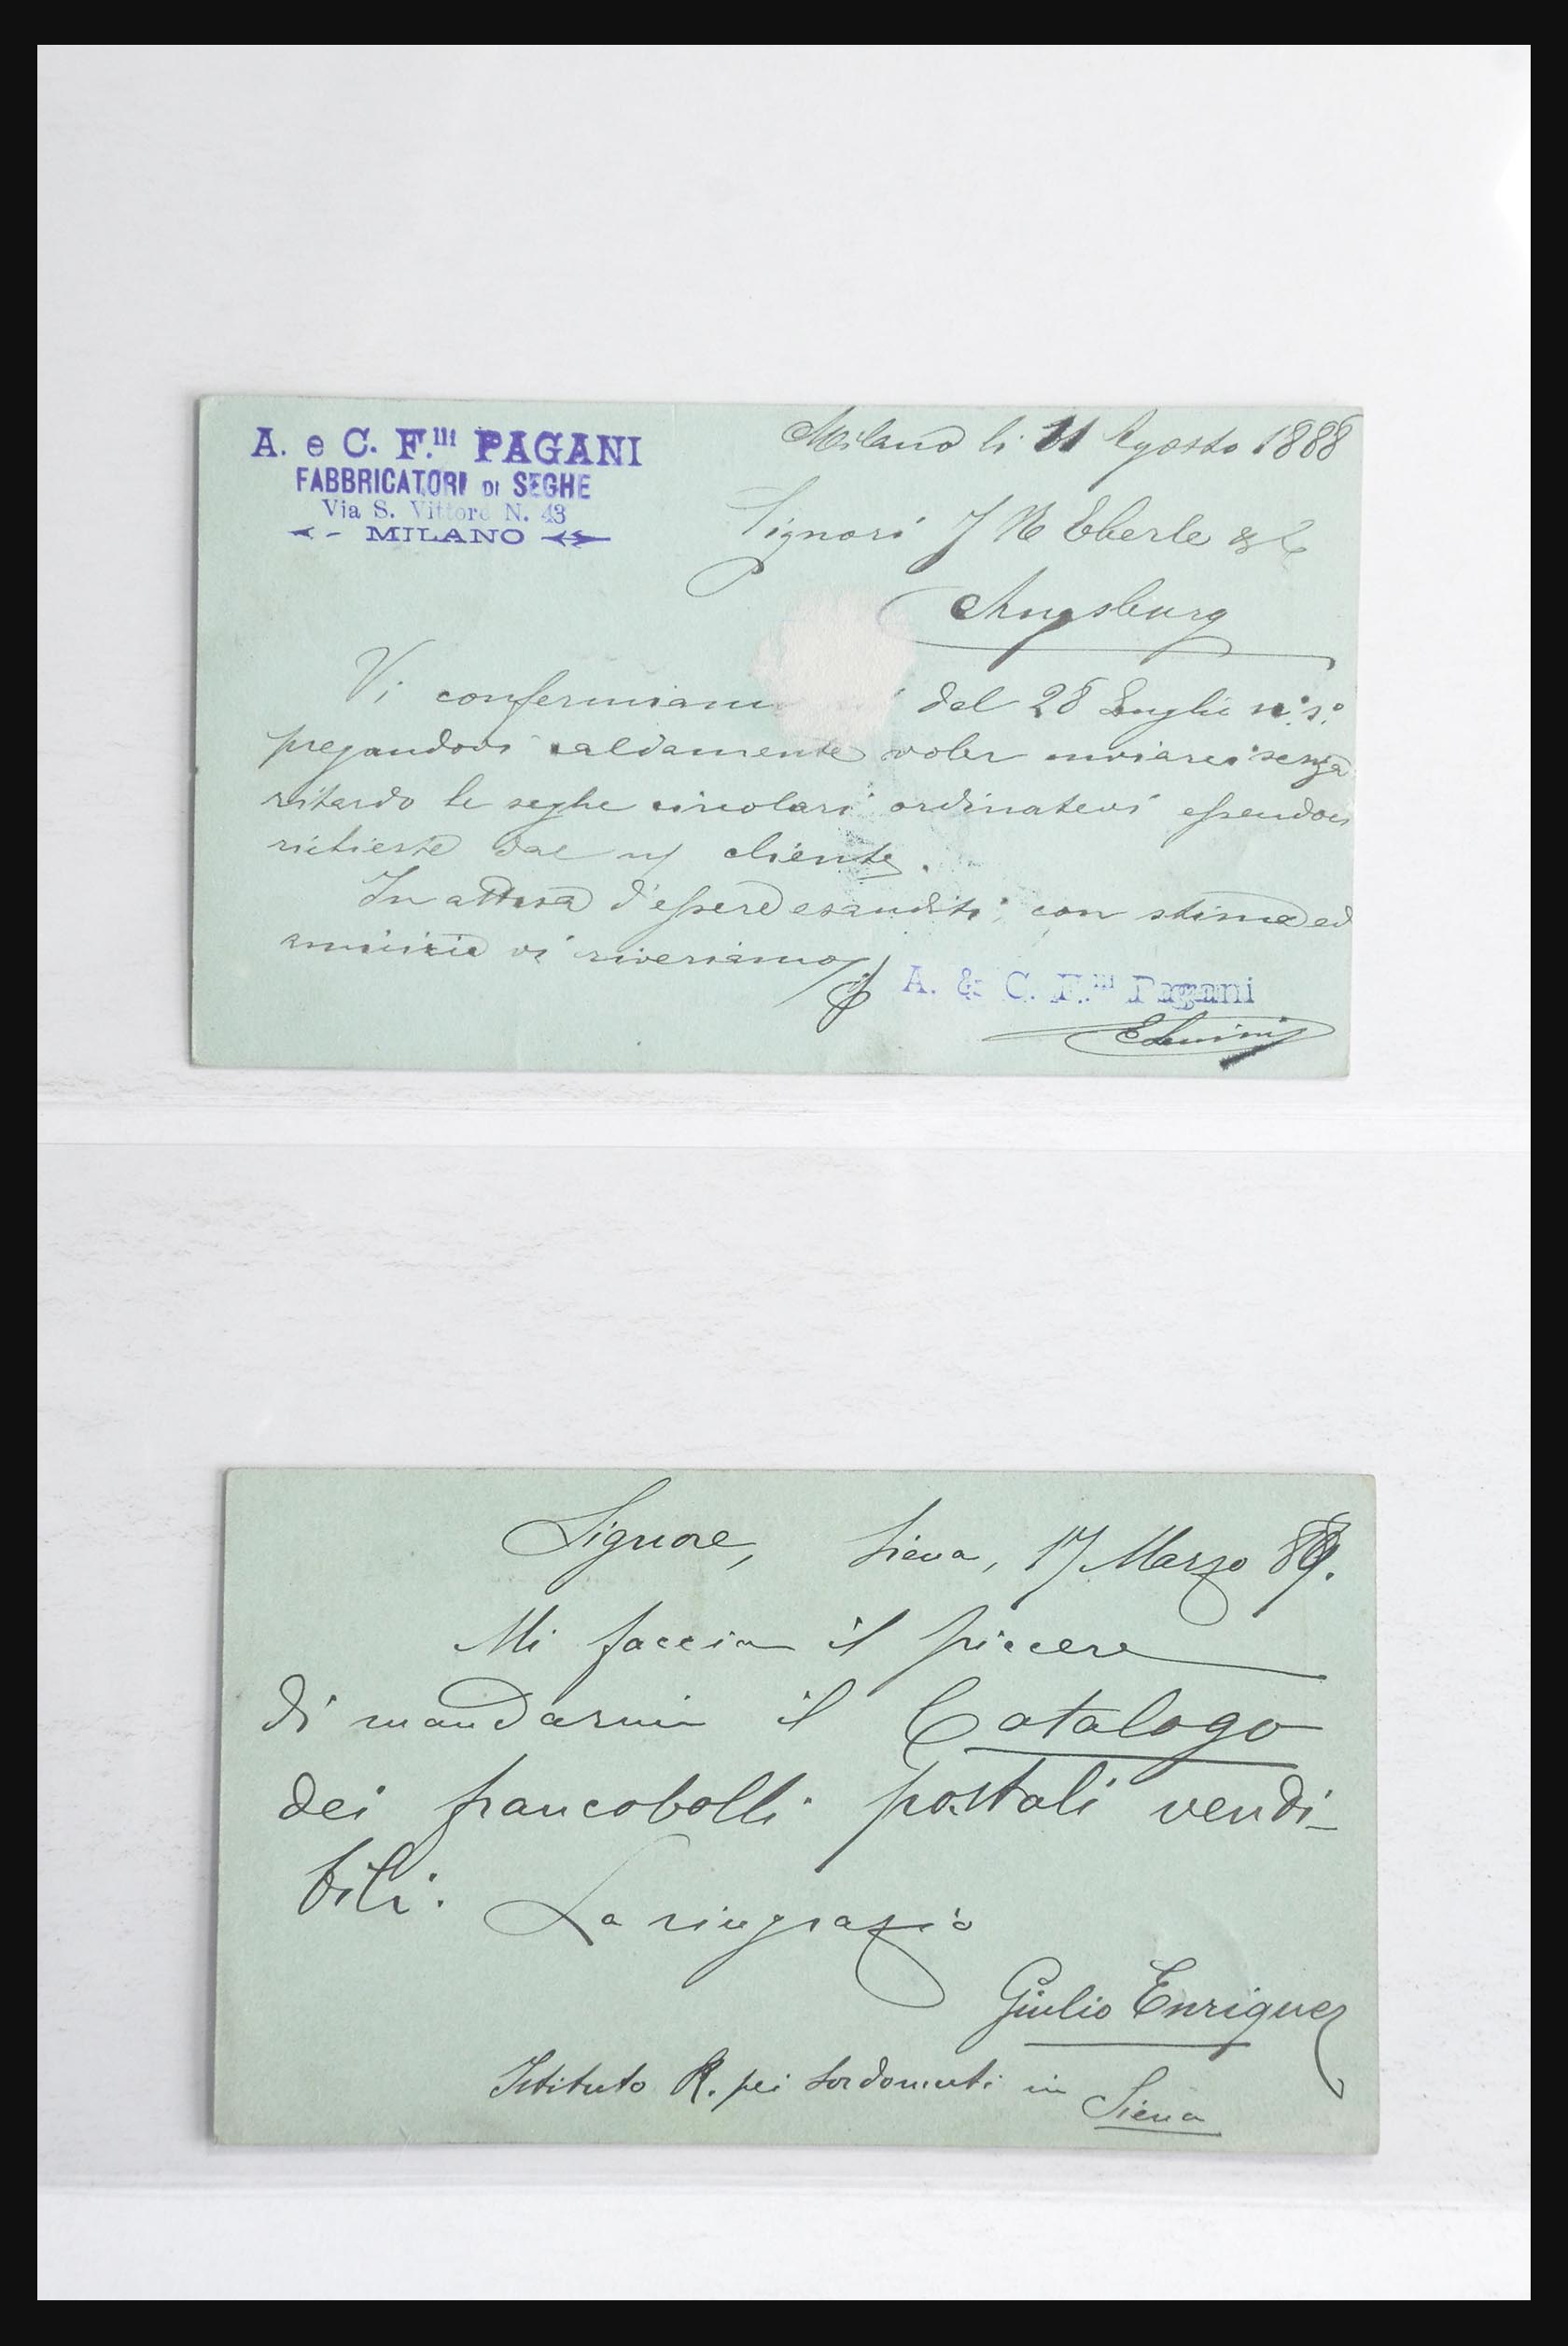 A. e C. F.lli PAGANI
FABBRICATORI DI SEGHE
Via S. Vittore N. 43
MILANO
Milano li 11 Agosto 1888
Signori J N Eberle & C
Augsburg
Vi confermiam dal 28 Luglio
pregandovi caldamente voler inviarci senza
ritardo le seghe circolari ordinatevi essendoci
richieste dal n/ cliente.
In attesa d'essere esauditi con stima ed
amicizia vi riveriamo
A. & C. F.lli Pagani
Signore, Siena, 17 Marzo 89.
Mi faccia il piacere
di mandarmi il Catalogo
dei francobolli postali vendi-
bili. La ringrazio
Giulio Enriquez
Istituto R. pei sordomuti in
Siena